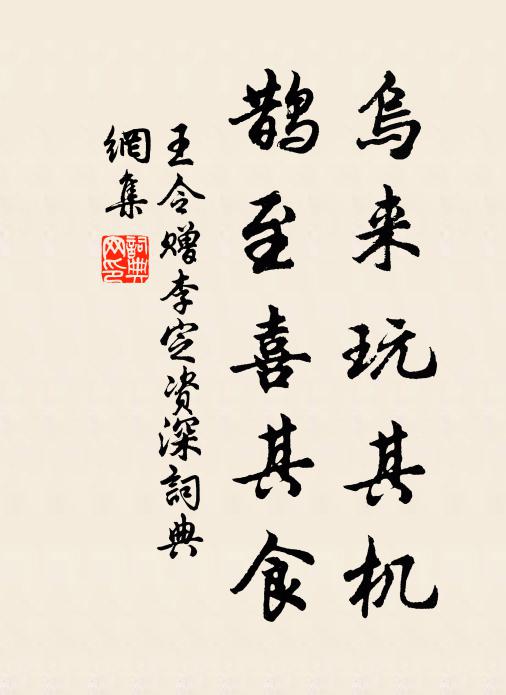 烏来玩其机
鹊至喜其食
王令赠李定资深詞典
網集
詞典
网印